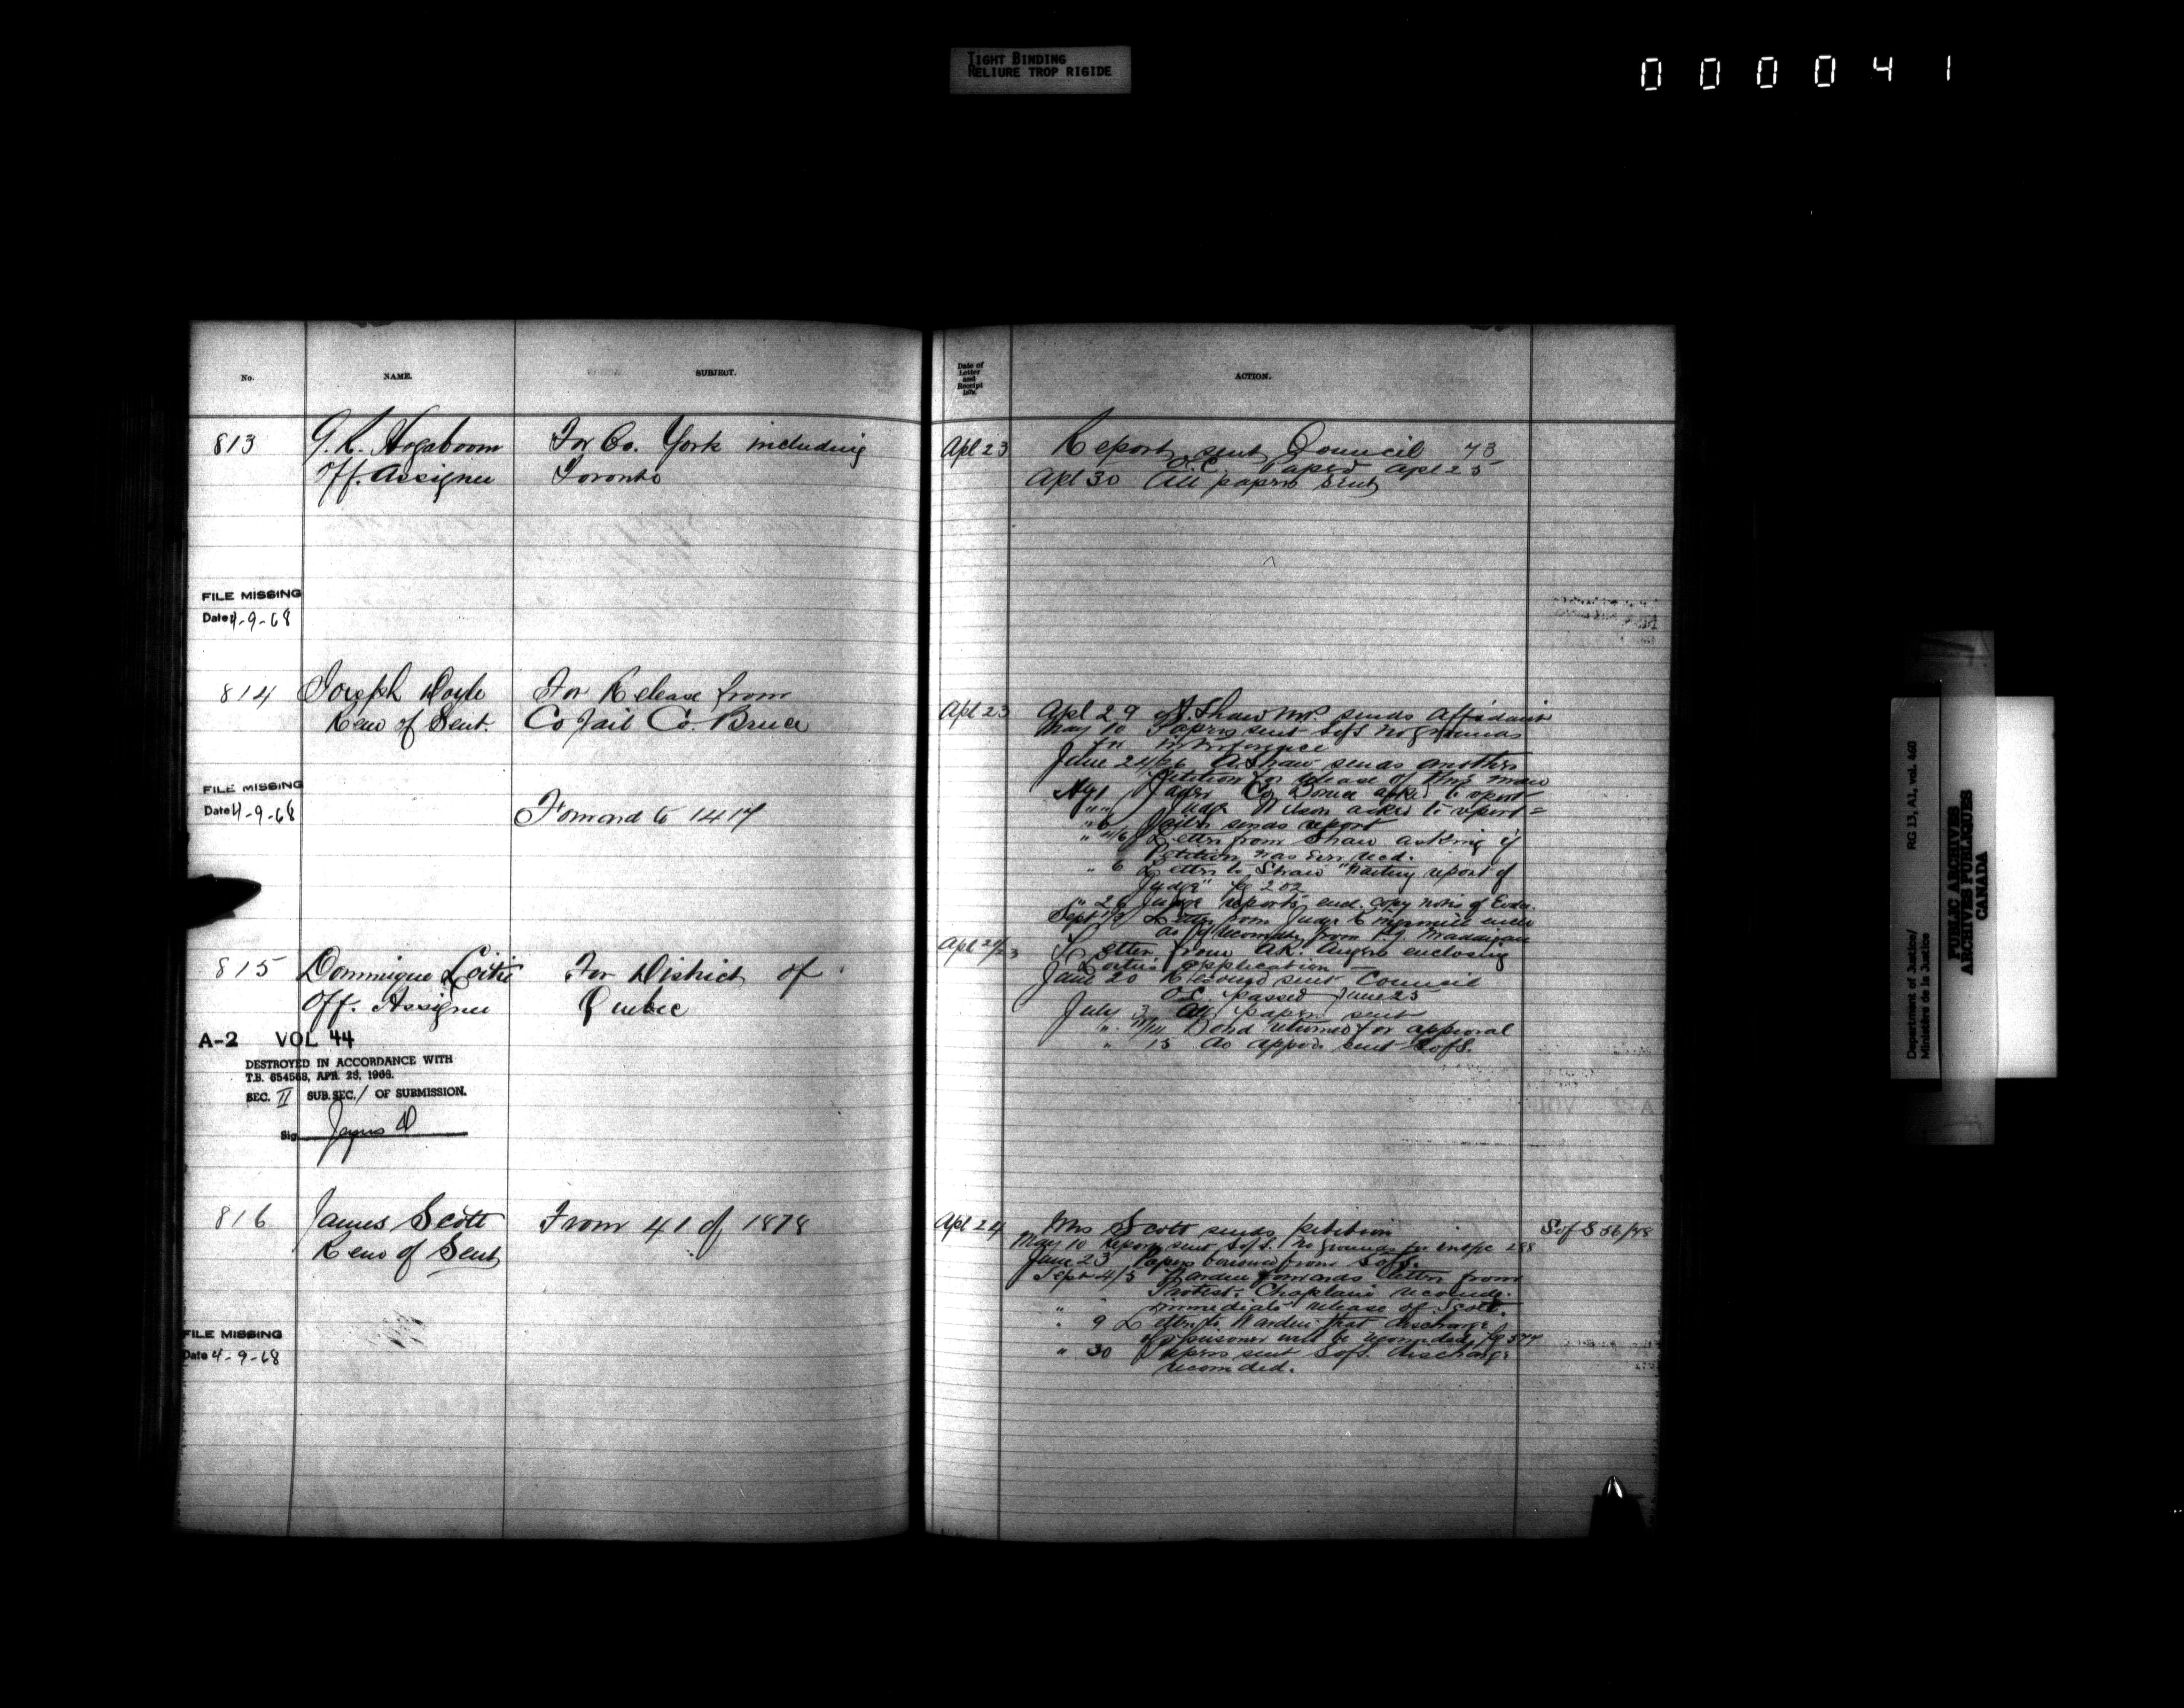 TIGHT BINDING
RELIURE TROP RIGIDE
000041
No.
NAME.
SUBJECT.
813
G. K. Hogaboom
Off. Assignee
For Co. York including
Toronto
FILE MISSING
Date 4-9-68
814
Joseph Doyle
Remn of Sent.
For Release from
Co Jail Co. Bruce
FILE MISSING
Date 4-9-68
Forward to 1414
815
Dominique
Off. Assignee
For District of
Quebec
A-2 VOL 44
DESTROYED IN ACCORDANCE WITH
T.B. 654568, APR. 28, 1966.
SEC. II SUB. SEC. 1 OF SUBMISSION.
Sig.
816
James Scott
Remn of Sent
From 41 of 1878
FILE MISSING
Date 4-9-68
Date of
Letter
and
Receipt
ACTION.
Apl 23
Report sent Council 73
O.C. Passd Apl 25
Apl 30 All papers sent
Apl 23
Apl 29 A. Shaw M.P. sends Affidavit
May 10 Papers sent SofS no grounds
for interference
June 24/26 A Shaw sends another
Petition for release of
Jailer Co. Bruce asked to report
Judge asked to report
" 6 Jailer sends report
Letter from Shaw asking if
Petition has been recd.
" 6 Letter to Shaw "Waiting report of
Judge" fo 202
" 26 Judge reports encl. copy notes of Evdce.
Letter from Judge Kingsmill
from Madaigan
Letter from A.R. Angers enclosing
application
June 20 sent Council
O.C. passed June 25
July 3 All papers sent
" 11/14 Bond returned for approval
" 15 Do approd. sent SofS.
Apl 24
Mrs Scott sends petition
May 10 Report sent SofS. No grounds for 288
June 23 Papers borrowed from SofS.
Sept 4/5 Warden forwards letter from
Protest. Chaplain
immediate release of Scott.
" 9 Letter to Warden that discharge
of prisoner will be recomnded. fo 544
" 30 Papers sent SofS. discharge
recomded.
SofS 56/48
Department of Justice/
Ministère de la Justice
RG 13, A1, vol. 460
PUBLIC ARCHIVES
ARCHIVES PUBLIQUES
CANADA